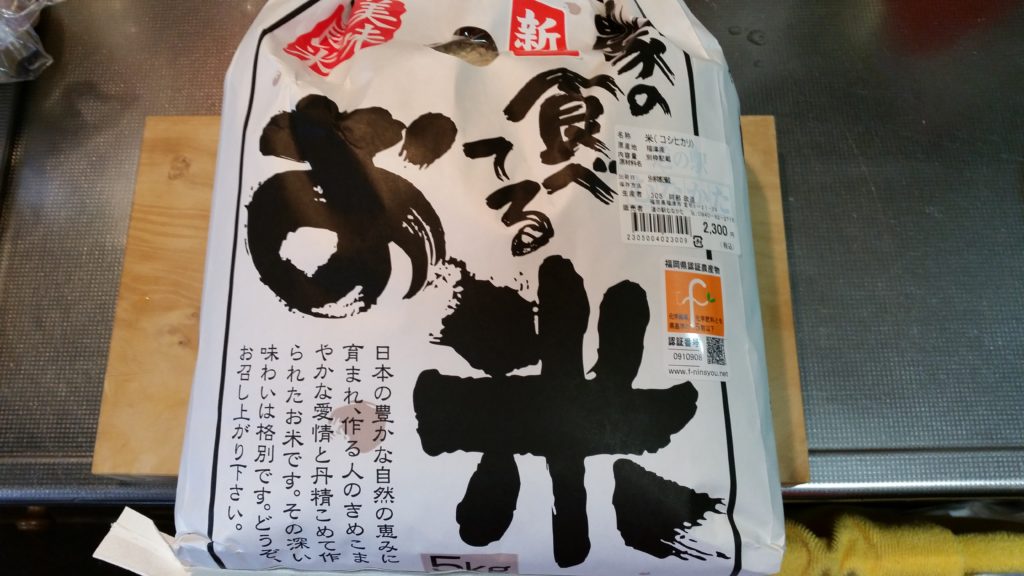 新
家の
食べ
てる
お米
美味
名称 米(コシヒカリ)
原産地 福津産
内容量 別枠記載
原材料名
出荷日 別枠記載
保存方法
生産者
販売者
2,300円
(税込)
2305004023009
福岡県認証農産物
認証番号
0910908
www.f-ninsyou.net
日本の豊かな自然の恵みに
育まれ、作る人のきめこま
やかな愛情と丹精こめて作
られたお米です。その深い
味わいは格別です。どうぞ、
お召し上がり下さい。
5kg